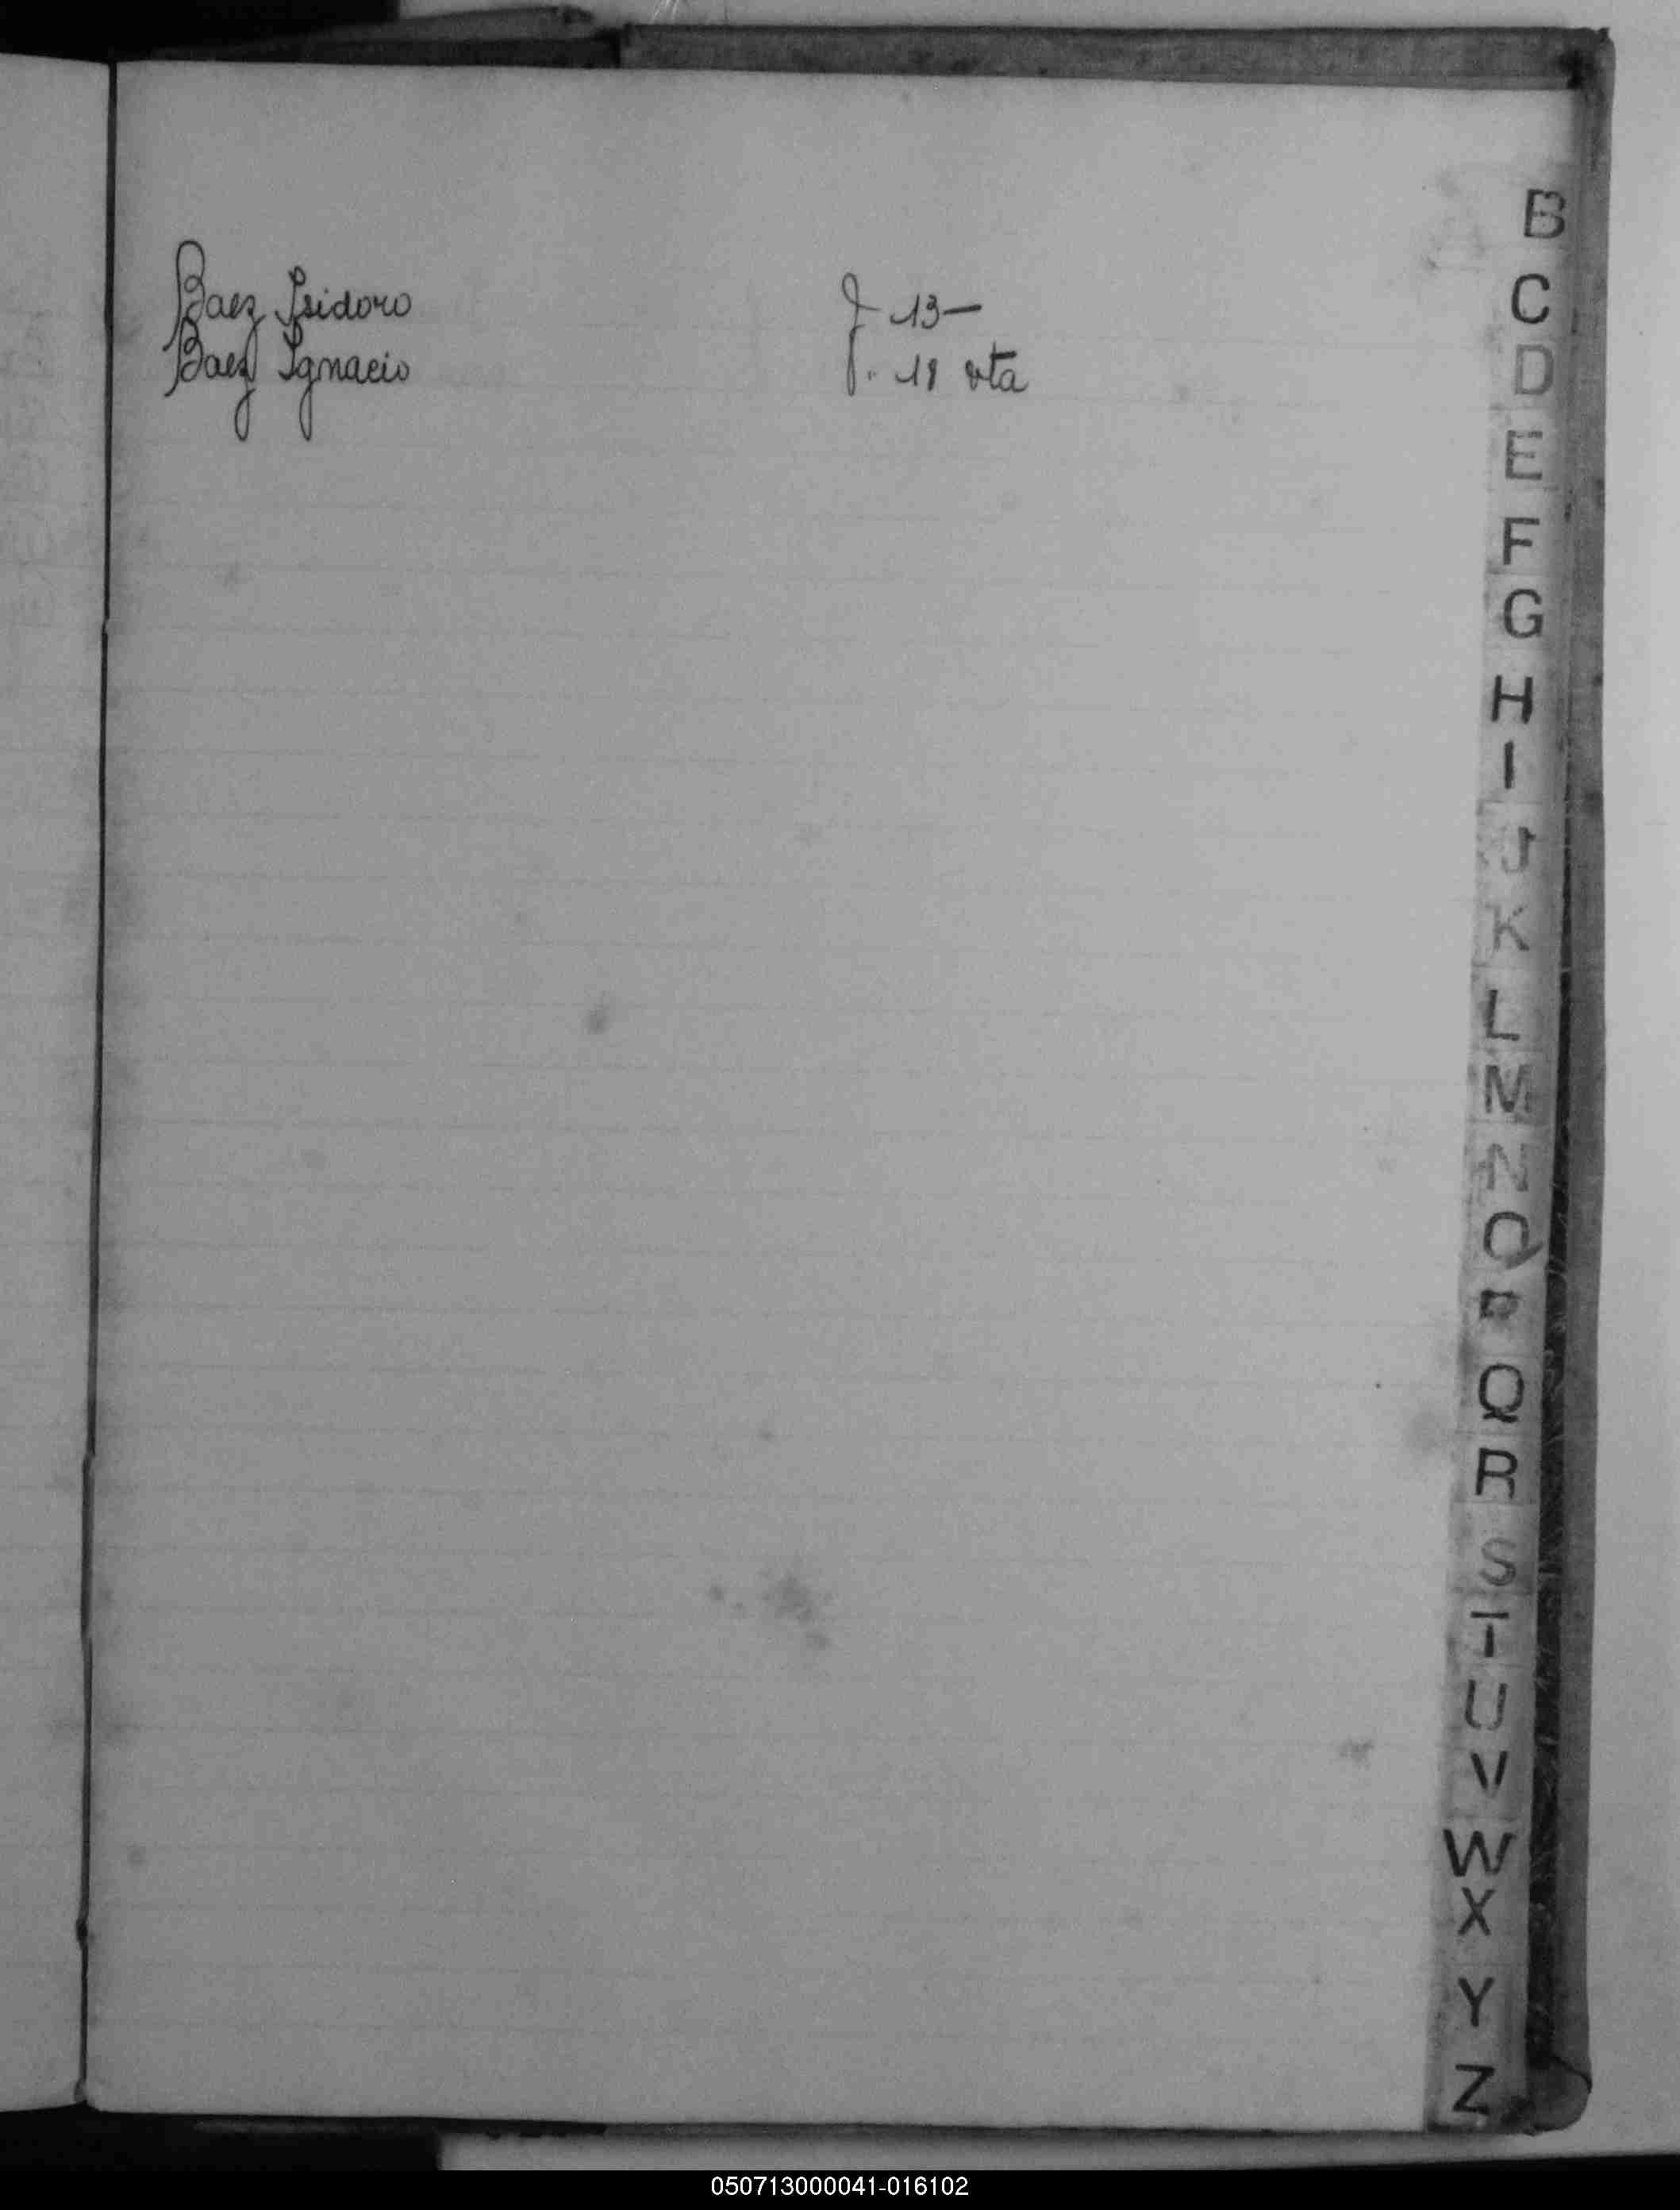 Baez Isidoro f 13—
Baez Ignacio f. 18 vta
B
C
D
E
F
G
H
I
J
K
L
M
N
O
P
Q
R
S
T
U
V
W
X
Y
Z
050713000041-016102